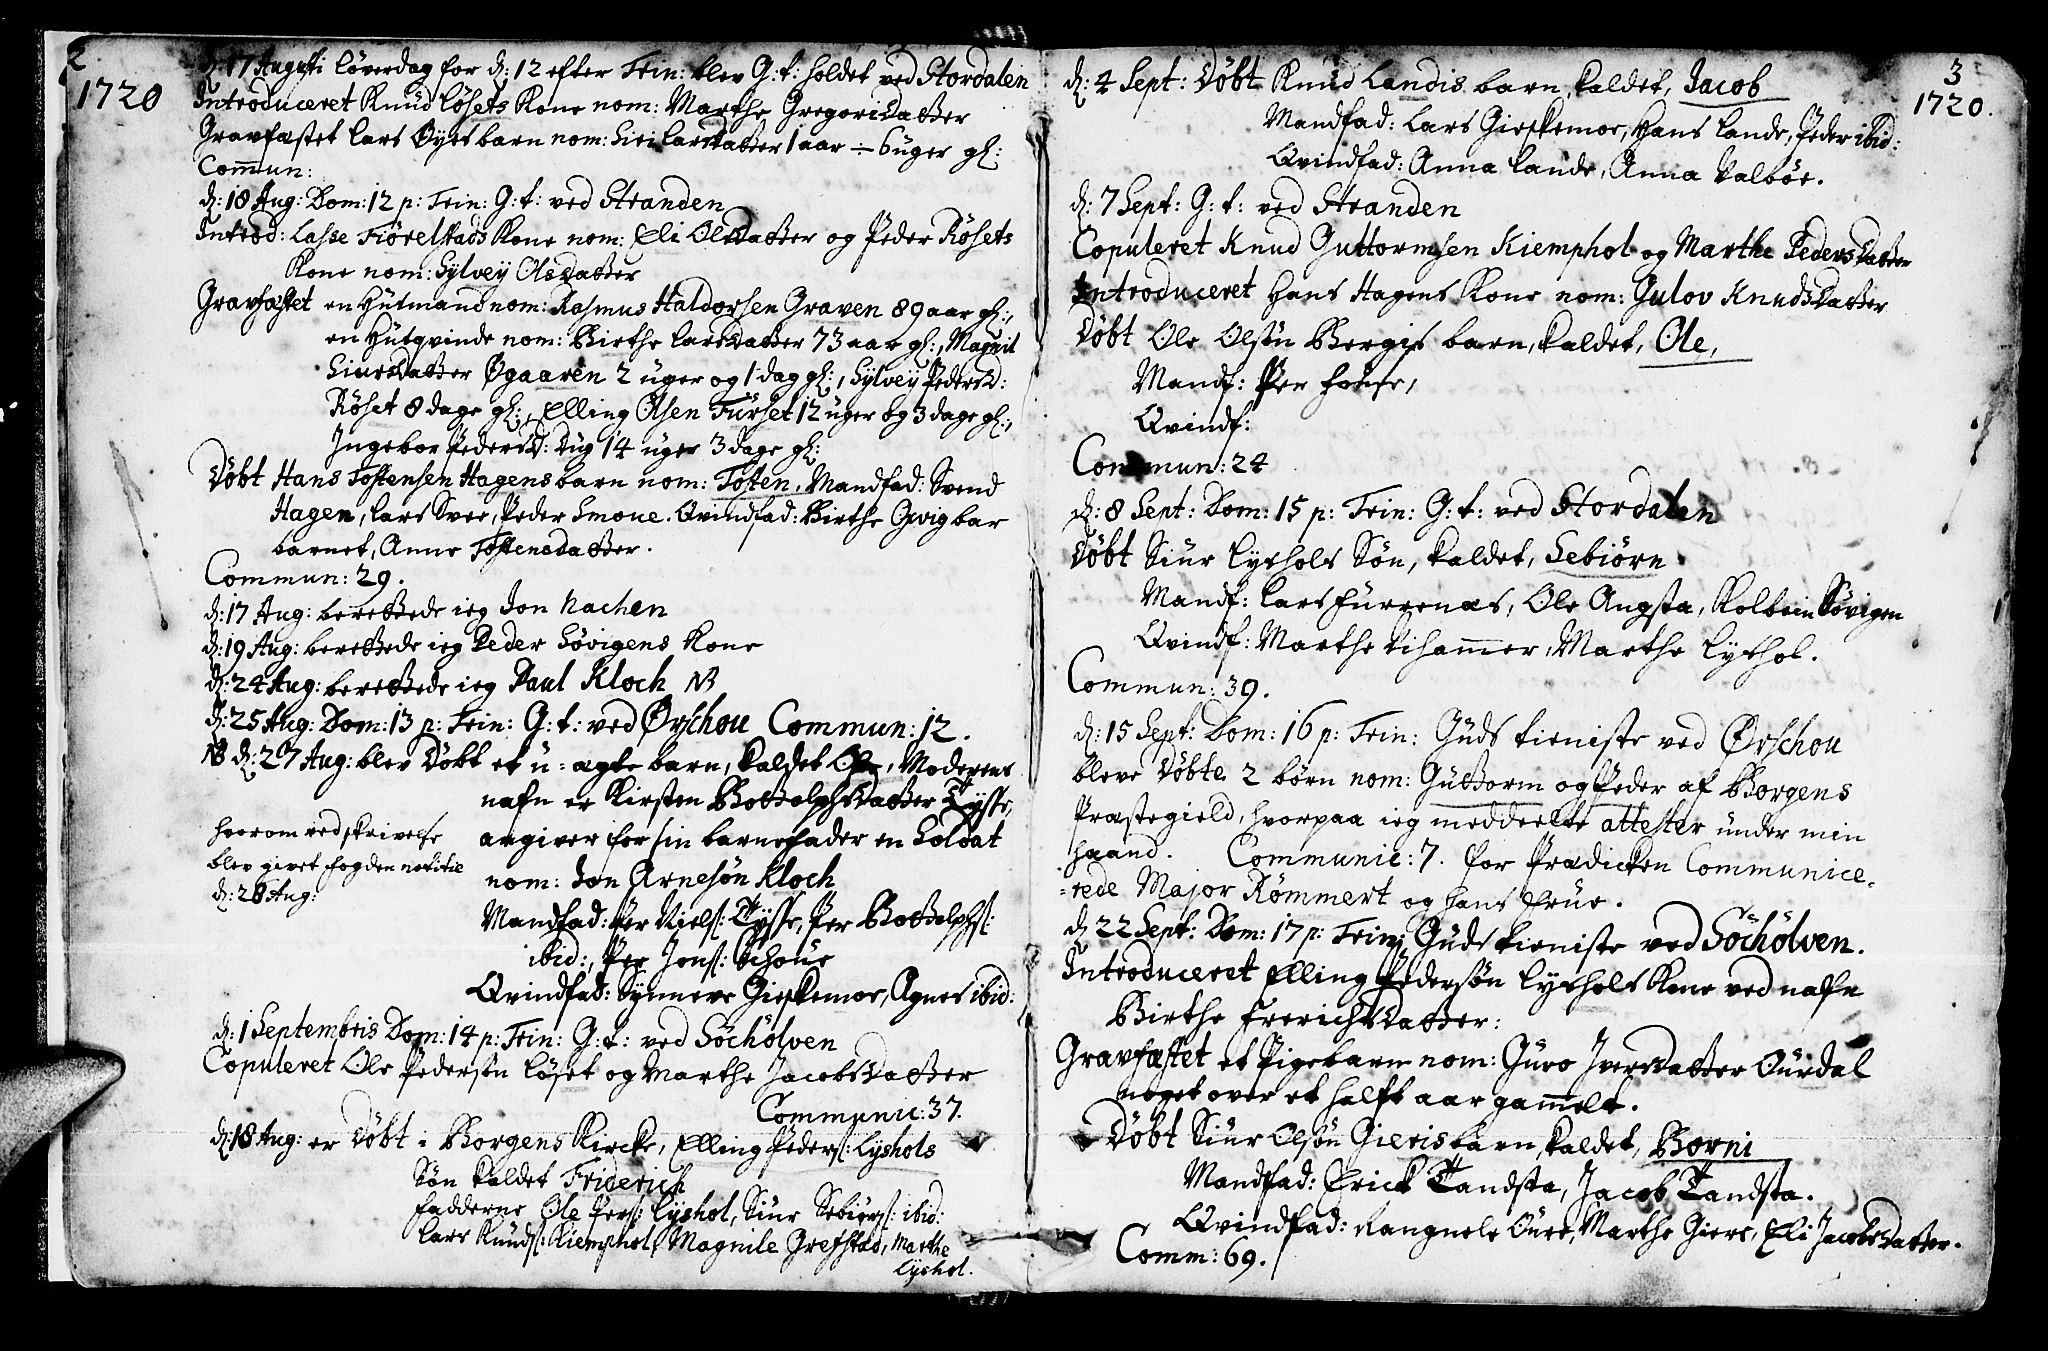 2
1720
d: 17 Augusti löverdag for d: 12 efter Trin: blev G: t: holdet ved Stordalen
Introduceret Knud Lösets Kone nom: Marthe Gregorisdatter
Gravfæstet Lars Öyes barn nom: Siri Larsdatter 1 aar ÷ 6 uger gl:
Com̅un:
d: 18 Aug: Dom: 12 p: Trin: G: t: ved Stranden
Introd: Lasse Fiörelstads Kone nom: Eli Olsdatter og Peder Rösets
Kone nom: Sylvey Olsdatter
Gravfæstet en Husmand nom: Rasmus Haldorsen Graven 89 aar gl:,
en Husqvinde nom: Birthe Larsdatter 73 aar gl:, Magnil
Siursdatter Øgaaren 2 uger og 1 dag gl:, Sylvey Pedersd:
Röset 8 dage gl:, Elling Olsen Furset 12 uger og 3 dage gl:,
Ingebor Pedersd: Dug 14 uger 3 dage gl:
Döbt Hans Tostensen Hagens barn nom: Tosten, Mandfad: Svend
Hagen, Lars Svee, Peder Smoue. Qvindfad: Birthe Opvig bar
barnet, Anne Tostensdatter.
Commun: 29.
d: 17 Aug: berettede ieg Jon Nachen
d: 19 Aug: berettede ieg Peder Sövigens Kone
d: 24 Aug: berettede ieg Paul Kloch NB
d: 25 Aug: Dom: 13 p: Trin: G: t: ved Ørschou Commun: 12.
NB d: 27 Aug: blev Döbt et u=ægte barn, kaldet Ole, Moderens
nafn er Kirsten Bottolphsdatter Tysse,
angiver for sin barnefader en Soldat
nom: Jon Arnesön Kloch
hvorom ved skrivelse
blev givet fogden notitie
d: 28 Aug:
Mandfad: Per Niels: Tysse, Per Bottolphs:
ibid:, Per Jons: Schoue
Qvindfad: Synneve Gieskemoe, Agnes ibid:
d: 1 Septembris Dom: 14 p: Trin: G: t: ved Söchölven
Copuleret Ole Pedersön Löset og Marthe Jacobsdatter
Communic: 37.
d: 18 Aug: er Döbt i Borgens Kircke, Elling Peders: Lyshols
Sön kaldet Friderich
Fadderne Ole Pers: Lyshol, Siur Sebiörs: ibid:
Lars Knuds: Kiemphol, Magnile Grefstad, Marthe
Lyshol.
3
1720.
d: 4 Sept: Döbt Knud Landis barn, kaldet, Jacob
Mandfad: Lars Gieskemoe, Hans Lande, Peder ibid:
Qvindfad: Anna Lande, Anna Valböe.
d: 7 Sept: G: t: ved Stranden
Copuleret Knud Guttormsen Kiemphol og Marthe Pedersdatter
Introduceret Hans Hagens Kone nom: Gulov Knudsdatter
Döbt Ole Olsön Bergis barn, kaldet, Ole,
Mandf: Per
Qvindf:
Commun: 24
d: 8 Sept: Dom: 15 p: Trin: G: t: ved Stordalen
Döbt Siur Lyshols Sön, kaldet, Sebiörn.
Mandf: Lars Furrenæs, Ole Angsta, Kolbein Sövigen
Qvindf: Marthe Viham̅er, Marthe Lyshol.
Commun: 39.
d: 15 Sept: Dom: 16 p: Trin: Guds tieniste ved Ørschou
bleve Döbte 2 börn nom: Guttorm og Peder af Borgens
Præstegield, hvorpaa ieg meddeelte attester under min
haand. Communic: 7. for Prædicken Communice-
-rede Major Römmert og hans Frue.
d: 22 Sept: Dom: 17 p: Trin: Guds tieniste ved Söchölven.
Introduceret Elling Pedersön Lyshols Kone ved nafn
Birthe Frerichsdatter:
Gravfæstet et Pigebarn nom: Guro Iversdatter Ourdal
noget over et halft aar gam̅elt.
Döbt Siur Olsön Gieris barn, kaldet, Borni
Mandfad: Erick Tandsta, Jacob Tandsta.
Qvindfad: Rangnele Oure, Marthe Giere, Eli Jacobsdatter.
Comm: 69.